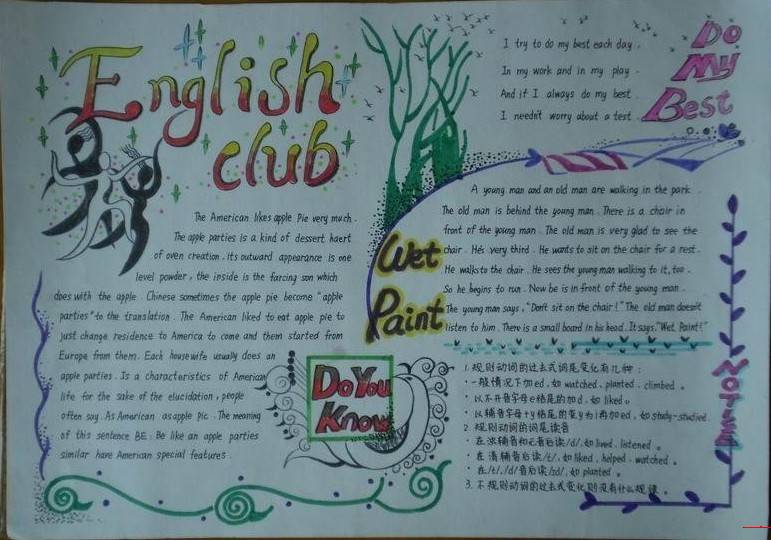 English
club
The American likes apple Pie very much.
The apple parties is a kind of dessert haert
of oven creation. Its outward appearance is one
level powder, the inside is the farcing son which
does with the apple. Chinese sometimes the apple pie become "apple
parties" to the translation. The American liked to eat apple pie to
just change residence to America to come and them started from
Europe from them. Each housewife usually does an
apple parties. Is a characteristics of American
life for the sake of the elucidation, people
often say. As American as apple pic. The meaning
of this sentence BE: Be like an apple parties
similar have American special features.
Do You
Know
I try to do my best each day.
In my work and in my play.
And if I always do my best.
I needn't worry about a test.
Do
My
Best
Wet
Paint
A young man and an old man are walking in the park.
The old man is behind the young man. There is a chair in
front of the young man. The old man is very glad to see the
chair. He's very third. He wants to sit on the chair for a rest.
He walks to the chair. He sees the young man walking to it, too.
So he begins to run. Now he is in front of the young man.
The young man says, "Don't sit on the chair!" The old man doesn't
listen to him. There is a small board in his head. It says, "Wet Paint!"
1. 规则动词的过去式词尾变化有几种:
·一般情况下加ed, 如 watched, planted, climbed。
·以不开音字母e结尾的加d, 如 liked。
·以辅音字母+y结尾的变y为i再加ed, 如 study-studied.
2. 规则动词的词尾读音
·在浊辅音和元音后读/d/, 如 lived, listened。
·在清辅音后读/t/, 如 liked, helped, watched。
·在/t/, /d/音后读/ɪd/, 如 planted。
3. 不规则动词的过去式变化则没有什么规律。